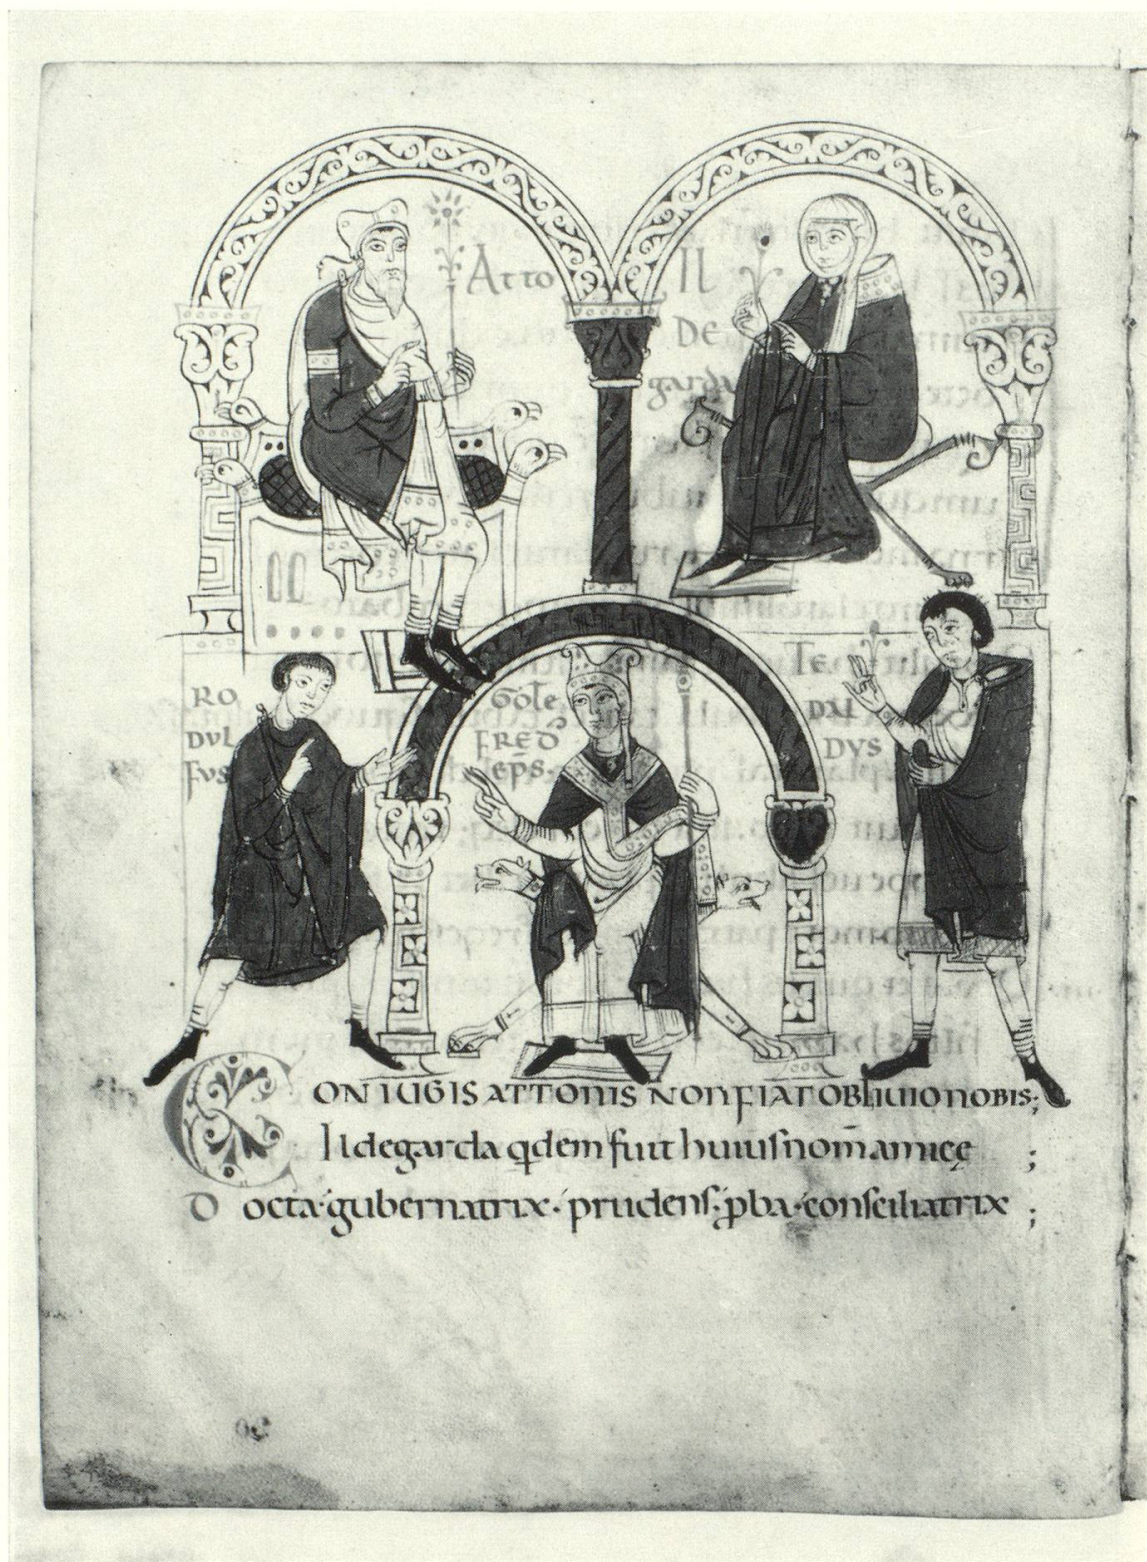 Atto
Il
DE
garda
RO
DUL
fUS
Gote
FRED
eps.
TE
DAL
DVS
CONIUGIS ATTONIS NON FIAT OBLIUIO NOBIS;
Ildegarda qdem fuit huius nom̄ amicę ;
Docta · gubernatrix · prudens · pba · consciliatrix ;